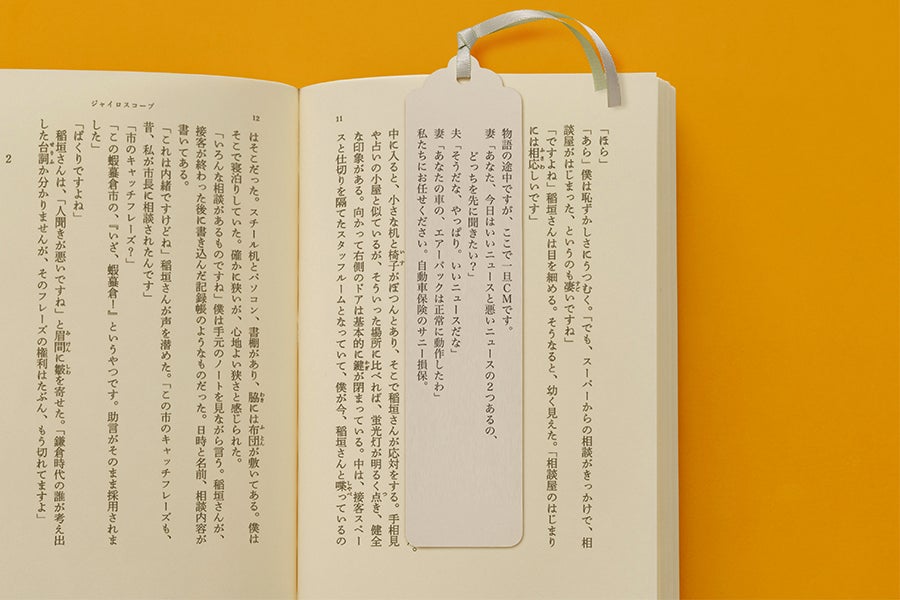 「ほら」
「あら」僕は恥ずかしさにうつむく。「でも、スーパーからの相談がきっかけで、相
談屋がはじまった、というのも凄いですね」
「ですよね」稲垣さんは目を細める。そうなると、幼く見えた。「相談屋のはじまり
には相応しいです」
物語の途中ですが、ここで一旦CMです。
妻「あなた、今日はいいニュースと悪いニュースの2つあるの、
どっちを先に聞きたい？」
夫「そうだな、やっぱり。いいニュースだな」
妻「あなたの車の、エアーバックは正常に動作したわ」
私たちにお任せください。自動車保険のサニー損保。
中に入ると、小さな机と椅子がぽつんとあり、そこで稲垣さんが応対をする。手相見
や占いの小屋と似ているが、そういった場所に比べれば、蛍光灯が明るく点き、健全
な印象がある。向かって右側のドアは基本的に鍵が閉まっている。中は、接客スペー
スと仕切りを隔てたスタッフルームとなっていて、僕が今、稲垣さんと喋っているの
11
12
はそこだった。スチール机とパソコン、書棚があり、脇には布団が敷いてある。僕は
そこで寝泊りしていた。確かに狭いが、心地よい狭さと感じられた。
「いろんな相談があるものですね」僕は手元のノートを見ながら言う。稲垣さんが、
接客が終わった後に書き込んだ記録帳のようなものだった。日時と名前、相談内容が
書いてある。
「これは内緒ですけどね」稲垣さんが声を潜めた。「この市のキャッチフレーズも、
昔、私が市長に相談されたんです」
「市のキャッチフレーズ？」
「この蝦蟇倉市の、『いざ、蝦蟇倉！』というやつです。助言がそのまま採用されま
した」
「ぱくりですよね」
稲垣さんは、「人聞きが悪いですね」と眉間に皺を寄せた。「鎌倉時代の誰が考え出
した台詞か分かりませんが、そのフレーズの権利はたぶん、もう切れてますよ」
ジャイロスコープ
2